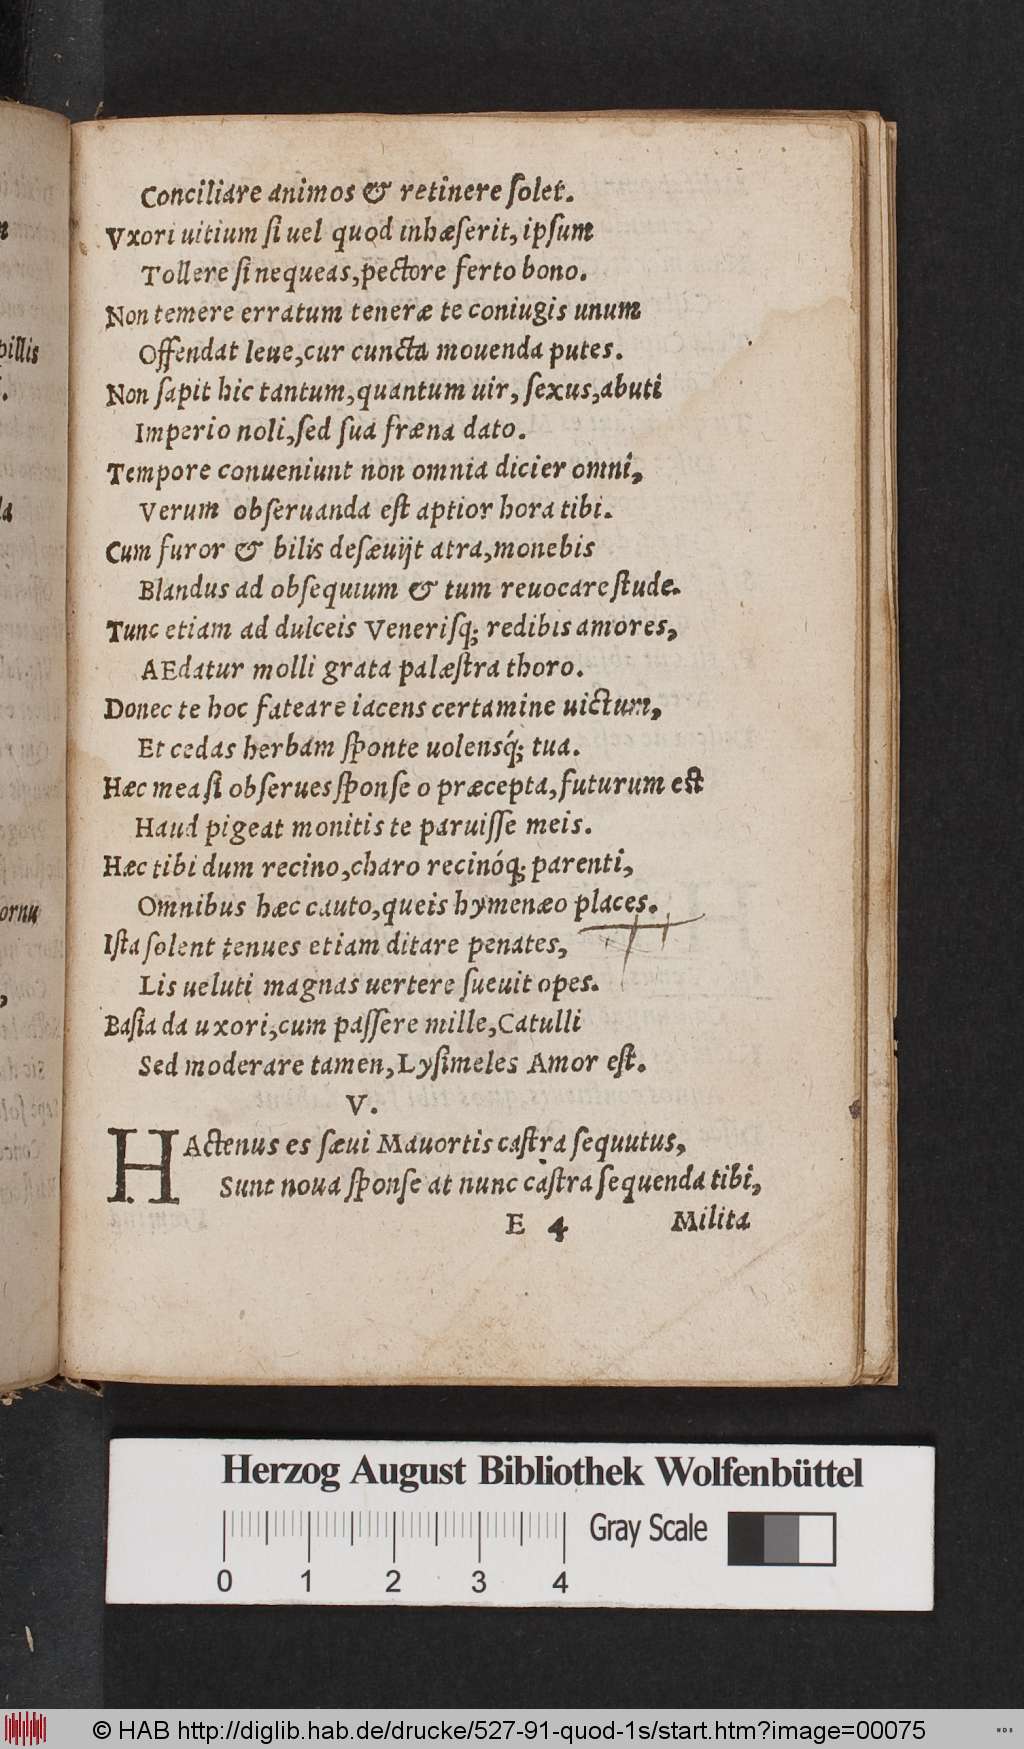 Conciliare animos & retinere ſolet.
Vxori uitium ſi uel quod inhæſerit, ipſum
Tollere ſi nequeas, pectore ferto bono.
Non temere erratum teneræ te coniugis unum
Offendat leue, cur cuncta mouenda putes.
Non ſapit hic tantum, quantum uir, ſexus, abuti
Imperio noli, ſed ſua fræna dato.
Tempore conueniunt non omnia dicier omni,
Verum obſeruanda eſt aptior hora tibi.
Cum furor & bilis deſæuijt atra, monebis
Blandus ad obſequium & tum reuocare ſtude.
Tunc etiam ad dulceis Veneriſq; redibis amores,
AEdatur molli grata palæſtra thoro.
Donec te hoc fateare iacens certamine uictum,
Et cedas herbam ſponte uolensq́; tua.
Hæc mea ſi obſerues ſponſe o præcepta, futurum eſt
Haud pigeat monitis te paruiſſe meis.
Hæc tibi dum recino, charo recinóq; parenti,
Omnibus hæc cauto, queis hymenæo places.
Iſta ſolent tenues etiam ditare penates,
Lis ueluti magnas uertere ſueuit opes.
Baſia da uxori, cum paſſere mille, Catulli
Sed moderare tamen, Lyſimeles Amor eſt.
V.
HActenus es ſæui Mauortis caſtra ſequutus,
Sunt noua ſponſe at nunc caſtra ſequenda tibi,
E 4 Milita
pillis
ornu
Herzog August Bibliothek Wolfenbüttel
Gray Scale
0 1 2 3 4
© HAB http://diglib.hab.de/drucke/527-91-quod-1s/start.htm?image=00075